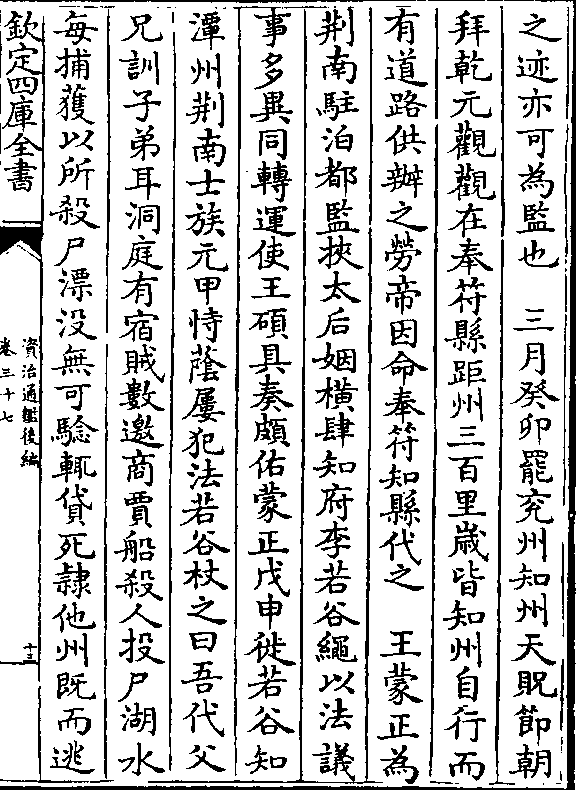 之迹亦可為監也　三月癸卯罷兖州知州天貺節朝
拜乾元觀觀在奉符縣距州三百里歲皆知州自行而
有道路供辦之勞帝因命奉符知縣代之　王蒙正為
荆南駐泊都監挾太后姻橫肆知府李若谷繩以法議
事多異同轉運使王碩具奏頗佑蒙正戊申徙若谷知
潭州荆南士族元甲恃蔭屢犯法若谷杖之曰吾代父
兄訓子弟耳洞庭有宿賊數邀商賈船殺人投尸湖水
每捕獲以所殺尸漂没無可驗輒貸死隷他州既而逃
欽定四庫全書
資治通鑑後編
卷三十七
十三